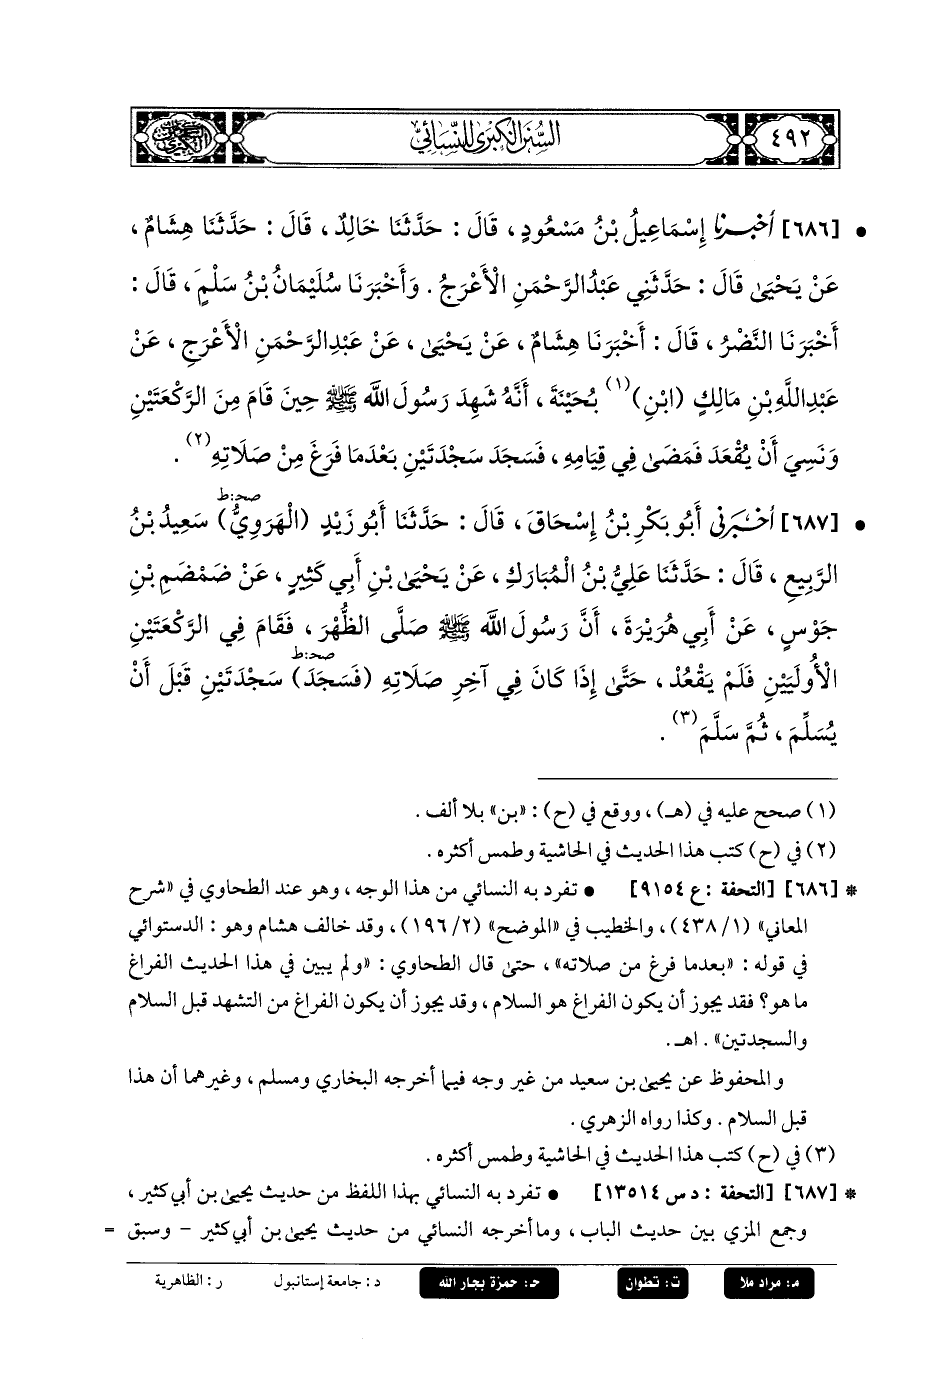 ٤٩٢
السُّنَنُ الْكُبْرَى لِلنَّسَائِيِّ
• [٦٨٦] أَخْبَرَنَا إِسْمَاعِيلُ بْنُ مَسْعُودٍ ، قَالَ : حَدَّثَنَا خَالِدٌ ، قَالَ : حَدَّثَنَا هِشَامٌ ،
عَنْ يَحْيَىٰ قَالَ : حَدَّثَنِي عَبْدُالرَّحْمَنِ الْأَعْرَجُ . وَأَخْبَرَنَا سُلَيْمَانُ بْنُ سَلْمٍ ، قَالَ :
أَخْبَرَنَا النَّضْرُ ، قَالَ : أَخْبَرَنَا هِشَامٌ ، عَنْ يَحْيَىٰ ، عَنْ عَبْدِالرَّحْمَنِ الْأَعْرَجِ ، عَنْ
عَبْدِاللَّهِ بْنِ مَالِكٍ (ابْنِ)(١) بُحَيْنَةَ ، أَنَّهُ شَهِدَ رَسُولَ اللَّه ﷺ حِينَ قَامَ مِنَ الرَّكْعَتَيْنِ
وَنَسِيَ أَنْ يُقْعَدَ فَمَضَىٰ فِي قِيَامِهِ ، فَسَجَدَ سَجْدَتَيْنِ بَعْدَمَا فَرَغَ مِنْ صَلَاتِهِ(٢) .
صحـ:ط
• [٦٨٧] أَخْبَرَنِي أَبُو بَكْرِ بْنُ إِسْحَاقَ ، قَالَ : حَدَّثَنَا أَبُو زَيْدٍ (الْهَرَوِيُّ) سَعِيدُ بْنُ
الرَّبِيعِ ، قَالَ : حَدَّثَنَا عَلِيُّ بْنُ الْمُبَارَكِ ، عَنْ يَحْيَىٰ بْنِ أَبِي كَثِيرٍ ، عَنْ ضَمْضَمِ بْنِ
جَوْسٍ ، عَنْ أَبِي هُرَيْرَةَ ، أَنَّ رَسُولَ اللَّه ﷺ صَلَّى الظُّهْرَ ، فَقَامَ فِي الرَّكْعَتَيْنِ
صحـ:ط
الْأُولَيَيْنِ فَلَمْ يَقْعُدْ ، حَتَّىٰ إِذَا كَانَ فِي آخِرِ صَلَاتِهِ (فَسَجَدَ) سَجْدَتَيْنِ قَبْلَ أَنْ
يُسَلِّمَ ، ثُمَّ سَلَّمَ(٣) .
(١) صحح عليه في (هـ) ، ووقع في (ح) : «بن» بلا ألف .
(٢) في (ح) كتب هذا الحديث في الحاشية وطمس أكثره .
* [٦٨٦] [التحفة : ع ٩١٥٤] • تفرد به النسائي من هذا الوجه ، وهو عند الطحاوي في «شرح
المعاني» (١/ ٤٣٨) ، والخطيب في «الموضح» (٢/ ١٩٦) ، وقد خالف هشام وهو : الدستوائي
في قوله : «بعدما فرغ من صلاته» ، حتىٰ قال الطحاوي : «ولم يبين في هذا الحديث الفراغ
ما هو؟ فقد يجوز أن يكون الفراغ هو السلام ، وقد يجوز أن يكون الفراغ من التشهد قبل السلام
والسجدتين» . اهـ .
والمحفوظ عن يحيىٰ بن سعيد من غير وجه فيما أخرجه البخاري ومسلم ، وغيرهما أن هذا
قبل السلام . وكذا رواه الزهري .
(٣) في (ح) كتب هذا الحديث في الحاشية وطمس أكثره .
* [٦٨٧] [التحفة : د س ١٣٥١٤] • تفرد به النسائي بهذا اللفظ من حديث يحيىٰ بن أبي كثير ،
وجمع المزي بين حديث الباب ، وما أخرجه النسائي من حديث يحيىٰ بن أبي كثير - وسبق =
م: مراد ملا ت: تطوان حـ: حمزة بجار الله د: جامعة إستانبول ر: الظاهرية